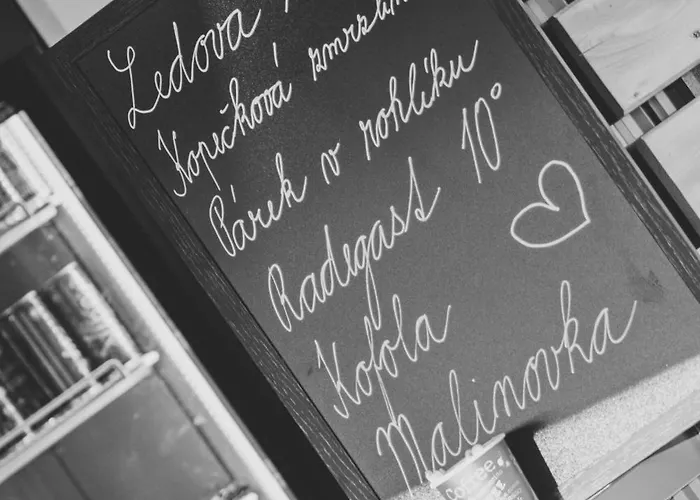 Ledová
Kopičková zmrzlin
Párek v rohlíku
Radegast 10°
Kofola
Malinovka
Coffee